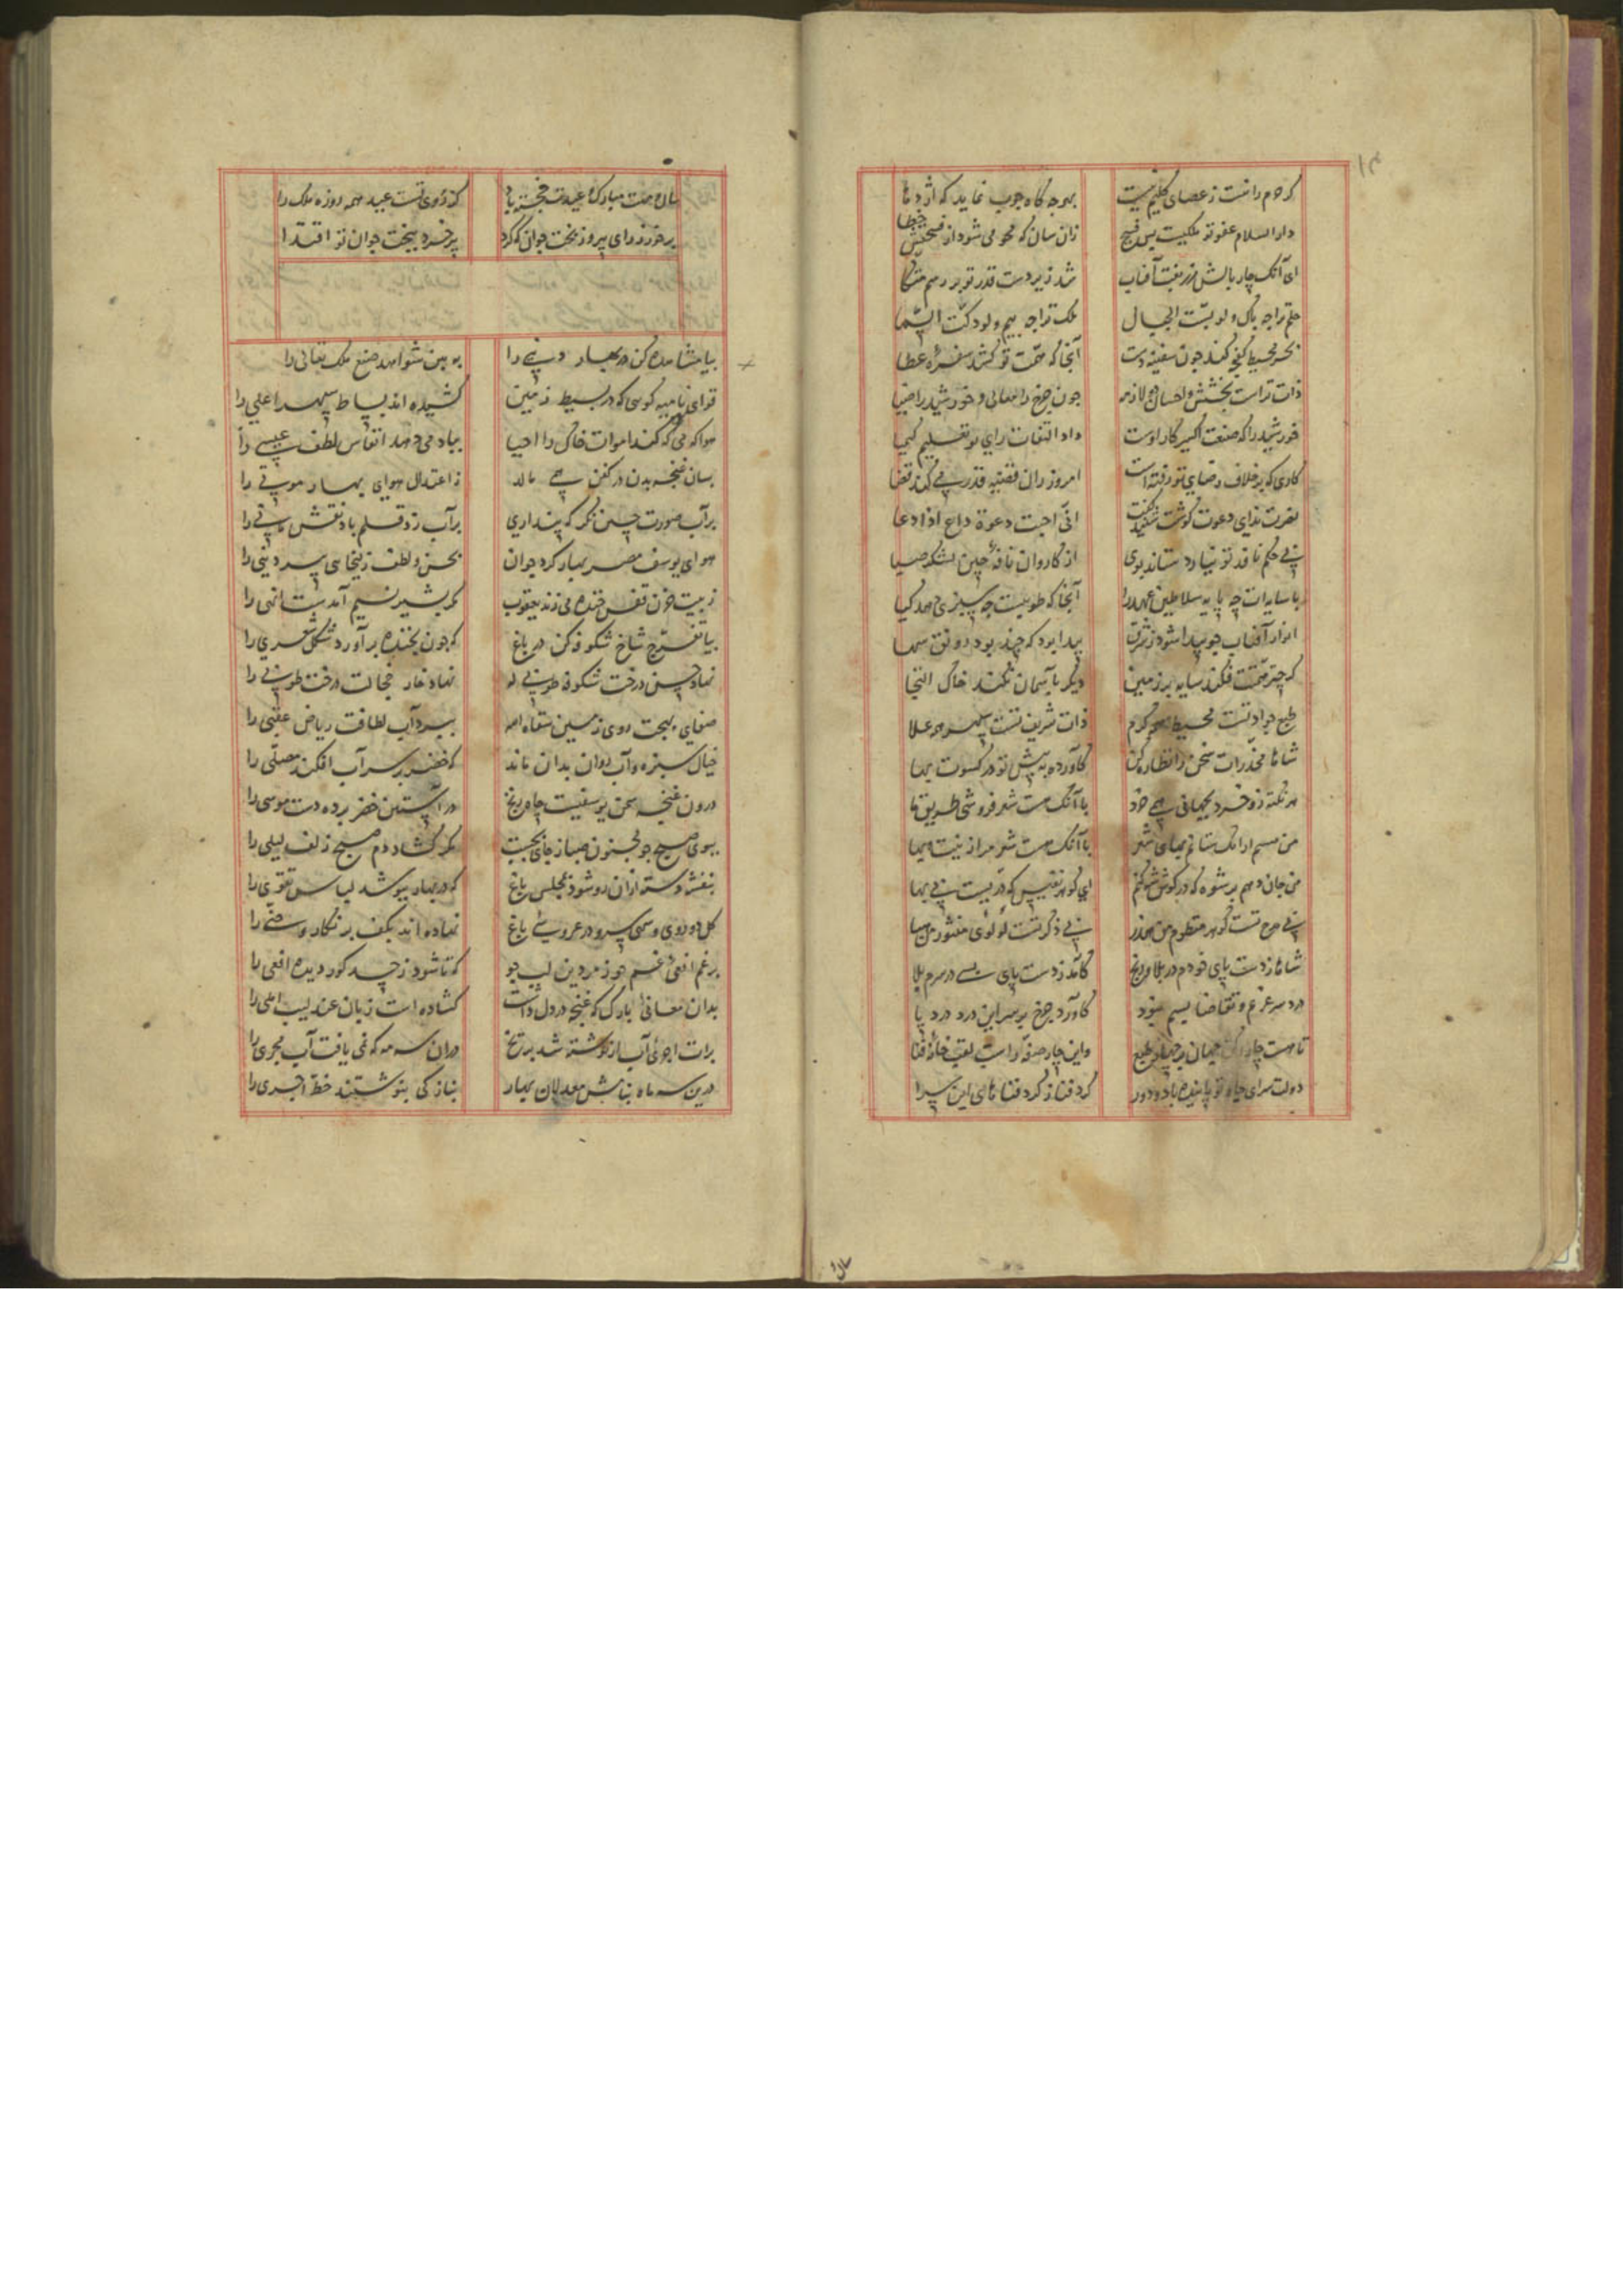 ۱۴
کر دم راست ز عصای کلیم نیست بهر چه گاه چوب نماید که اژدها
دار السلام عفو تو ملکیست بس فسیح زان سان که محو می شود از فسحتش خطا
ای آنک چار بالش زربفت آفتاب شد زیر دست قدر تو بر رسم متکا
حلم تراجه باک ولو بست الجبال ملک تراجه بیم ولو دکت السما
بحر محیط کند چون سفینه دست آنجا که همت تو کشد سفره عطا
ذات تراست بخشش و احسان لازم چون چرخ را معالی و خورشید را ضیا
خورشید را که صنعت اکسیر کار اوست داد التفات رای تو تعلیم کیمیا
کاری که بر خلاف رضای تو رفته است امروز ران قضیه قدر پی کند قضا
نصرت ندای دعوت گوشت شنید گفت انی اجبت دعوة داع اذا دعا
بی حکم نافذ تو نیارد ستاند بوی از کاروان نافه چین لشکر صبا
با سایه ات چه پایه سلاطین عهد را آنجا که طوبیست چه سبزی دهد گیا
انوار آفتاب چو پیدا شود ز شرق پیدا بود که چند بود رونق سها
گر چتر همتت فکند سایه بر زمین دیگر بآسمان نکند خاک التجا
طبع جواد تست محیط کرم ذات شریف تست سپهر علا
شاها مخدرات سخن را نظاره کن کاورده به پیش تو در کسوت بها
هر نکته زو خرد بجهانی همی خرد با آنک هست شعر فروشی طریق ما
من مستم از آنک ستانم بهای شعر با آنک هست شعر مرا زینت و بها
من جان دهم بر شوه که در گوش شه کنم این گوهر نفیس که دریست بی بها
بی مدح تست گوهر منظوم من هدر بی ذکر تست لولوی منثور من هبا
شاها ز دست پای خودم در بلا و رنج کامد ز دست پای بسی در سرم بلا
درد سر غرم و تقاضا بسم نبود کاورد چرخ بر سر این درد درد پا
تا هست چار رکن جهان بر چهار طبع واین چار صفه راست لقب خانه فنا
دولت سرای جاه تو پاینده باد و دور گرد فنا ز گرد فناهای این سرا
سال
سال و مهت مبارک و عیدت خجسته باد کز روی تست عید همه روزه ملک را
برخور ز رای پیر و ز بخت جوان که کرد پیر خرد ببخت جوان تو اقتدا
بیا مشاهده کن در بهار دنیی را به بین شواهد صنع ملک تعالی را
قوای نامیه گوئی که در بسیط زمین کشیده اند بساط سپهر اعلی را
هوا که می که کند اموات خاک را احیا بباد می دهد انفاس لطف عیسی را
بسان غنچه بدن در کفن همی بالد ز اعتدال هوای بهار موتی را
بر آب صورت چین نگر که پنداری بر آب زد قلم باد نقش مانی را
هوای یوسف مصر بهار کرد جوان بحسن و لطف زلیخای پیر دنیی را
ز بیت حزن قفس خنده می زند یعقوب مگر بشیر نسیم آمد بت انهی را
بیا تفرج شاخ شکوفه کن در باغ که چون بخنده بر آورد شکل شعری را
نهاد حسن درخت شکوفه طوبی له نهاد خار خجالت درخت طوبی را
صفای بهجت روی زمین سقاه الله ببرد آب لطافت ریاض عقبی را
خیال سبزه و آب روان بدان ماند که خضر بر سر آب افکند مصلی را
درون غنچه سمن یوسفیست چاه ربخ در آستین خضر برده دست موسی را
ببوی صبح چو مجنون صبا ز جای بجست مگر گشاد دم صبح زلف لیلی را
بنفشه دسته ازان رو شود بمجلس باغ که در بهار بپوشد لباس تقوی را
گل دو روی و سهی سرو در عروسی باغ نهاده اند بکف بر نگار و حنی را
برغم افعی غم خور زمردین لب جو که تا شود زحسد کور دیده افعی را
بدان معانی باریک که غنچه در دل داشت گشاده است زبان عندلیب املی را
برات اجرای آب ار نوشته شد بر یخ دران سه مه که نمی یافت آب مجری را
درین سه ماه بنامش معدلان بهار بتازگی بنوشتند خط اجری را